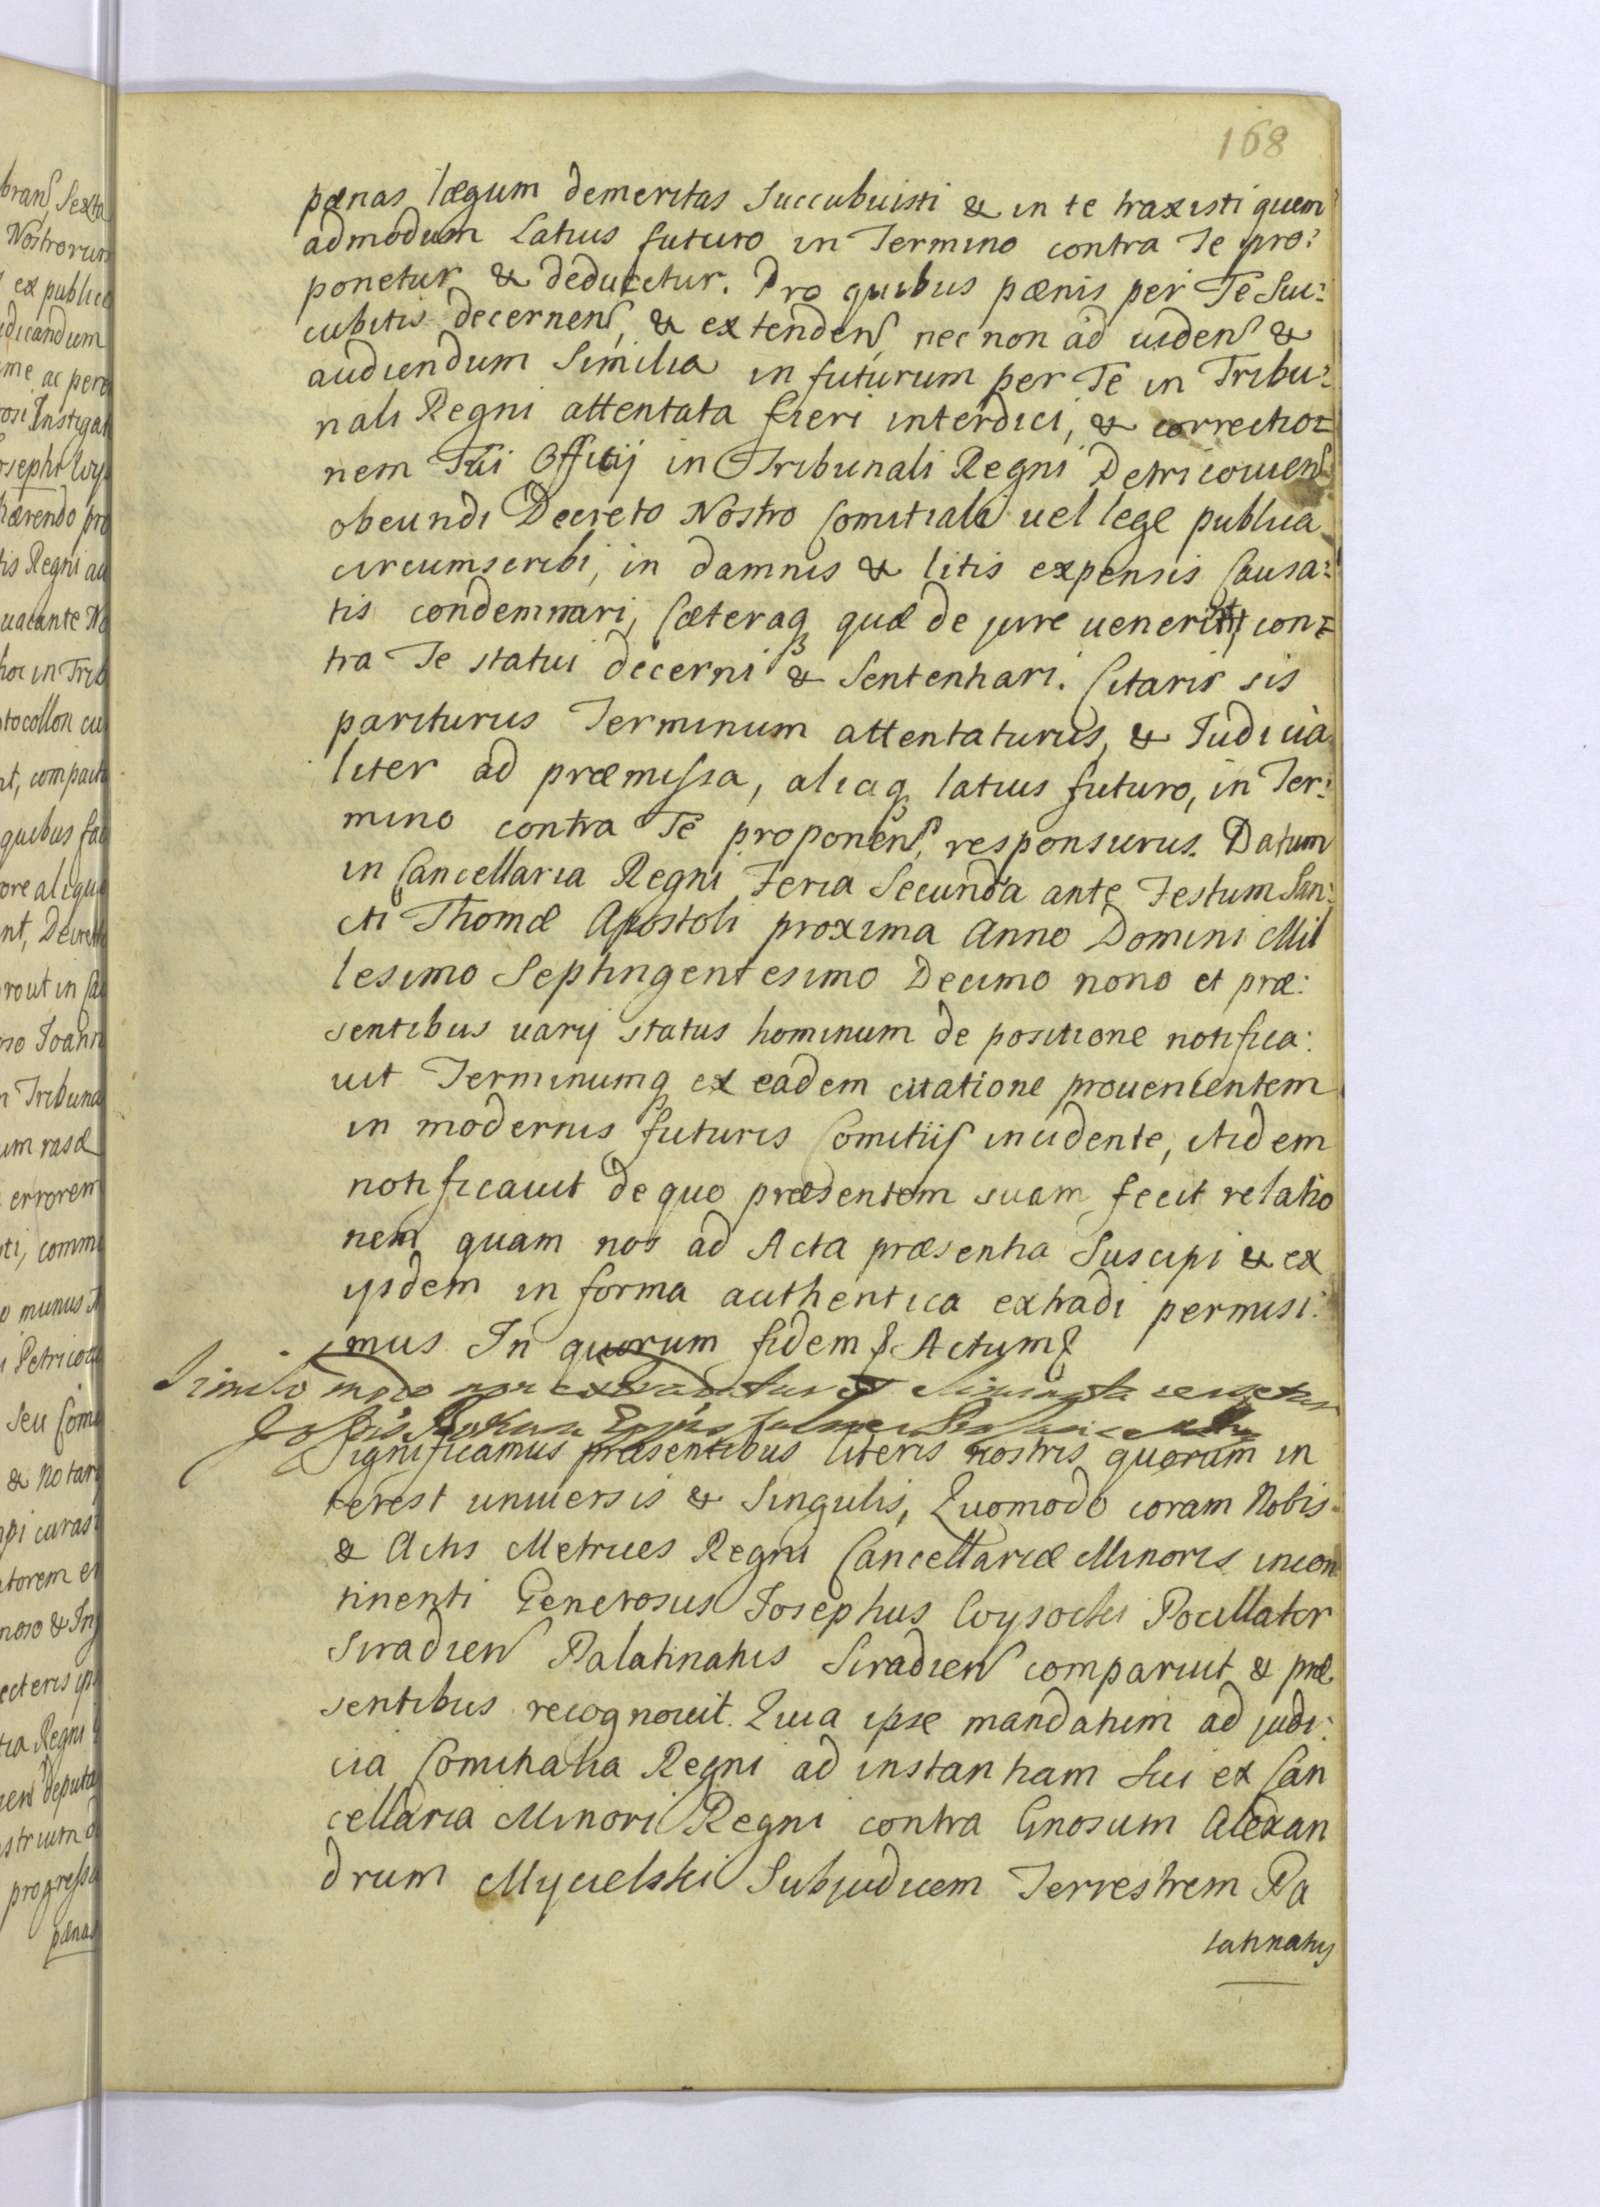 168
pænas lægum demeritas Succubuisti & in te traxisti quem
admodum Latius futuro in Termino contra Te pro:
ponetur & deducetur. Pro quibus pænis per Te Suc:
cubitis decernens, & extendens, nec non ad videns &
audiendum Similia in futurum per Te in Tribu:
nali Regni attentata fieri interdici, & correctio:
nem Tui Officij in Tribunali Regni Petricouiens
obeundi Decreto Nostro Comitiali uel lege publica
circumscribi, in damnis & litis expensis Causa:
tis condemnari, Cæteraq quæ de jure uenerint con:
tra Te statui decerni & Sententiari. Citaris sis
pariturus Terminum attentaturus, & Judicia
liter ad præmissa, aliaq latius futuro, in Ter:
mino contra Te proponens, responsurus. Datum
in Cancellaria Regni Feria Secunda ante Festum San:
cti Thomæ Apostoli proxima Anno Domini Mil
lesimo Septingentesimo Decimo nono et præ:
sentibus varij status hominum de positione notifica:
uit Terminumq ex eadem citatione prouenientem
in modernis futuris Comitiis incidente, itidem
notificauit de quo præsentem suam fecit relatio
nem quam nos ad Acta præsentia Suscipi & ex
ijsdem in forma authentica extradi permisi:
mus In quorum fidem & Actum &
Simili modo
Significamus præsentibus literis nostris quorum in
terest uniuersis & Singulis, Quomodo coram Nobis
& Actis Metrices Regni Cancellariæ Minoris incon
tinenti Generosus Josephus Wysocki Pocillator
Siradiens Palatinatus Siradiens comparuit & præ
sentibus recognouit. Quia ipse mandatum ad judi:
cia Comitialia Regni ad instantiam Sui ex Can
cellaria Minori Regni contra Gnosum Alexan
drum Mycielski Subjudicem Terrestrem Pa
latinatus